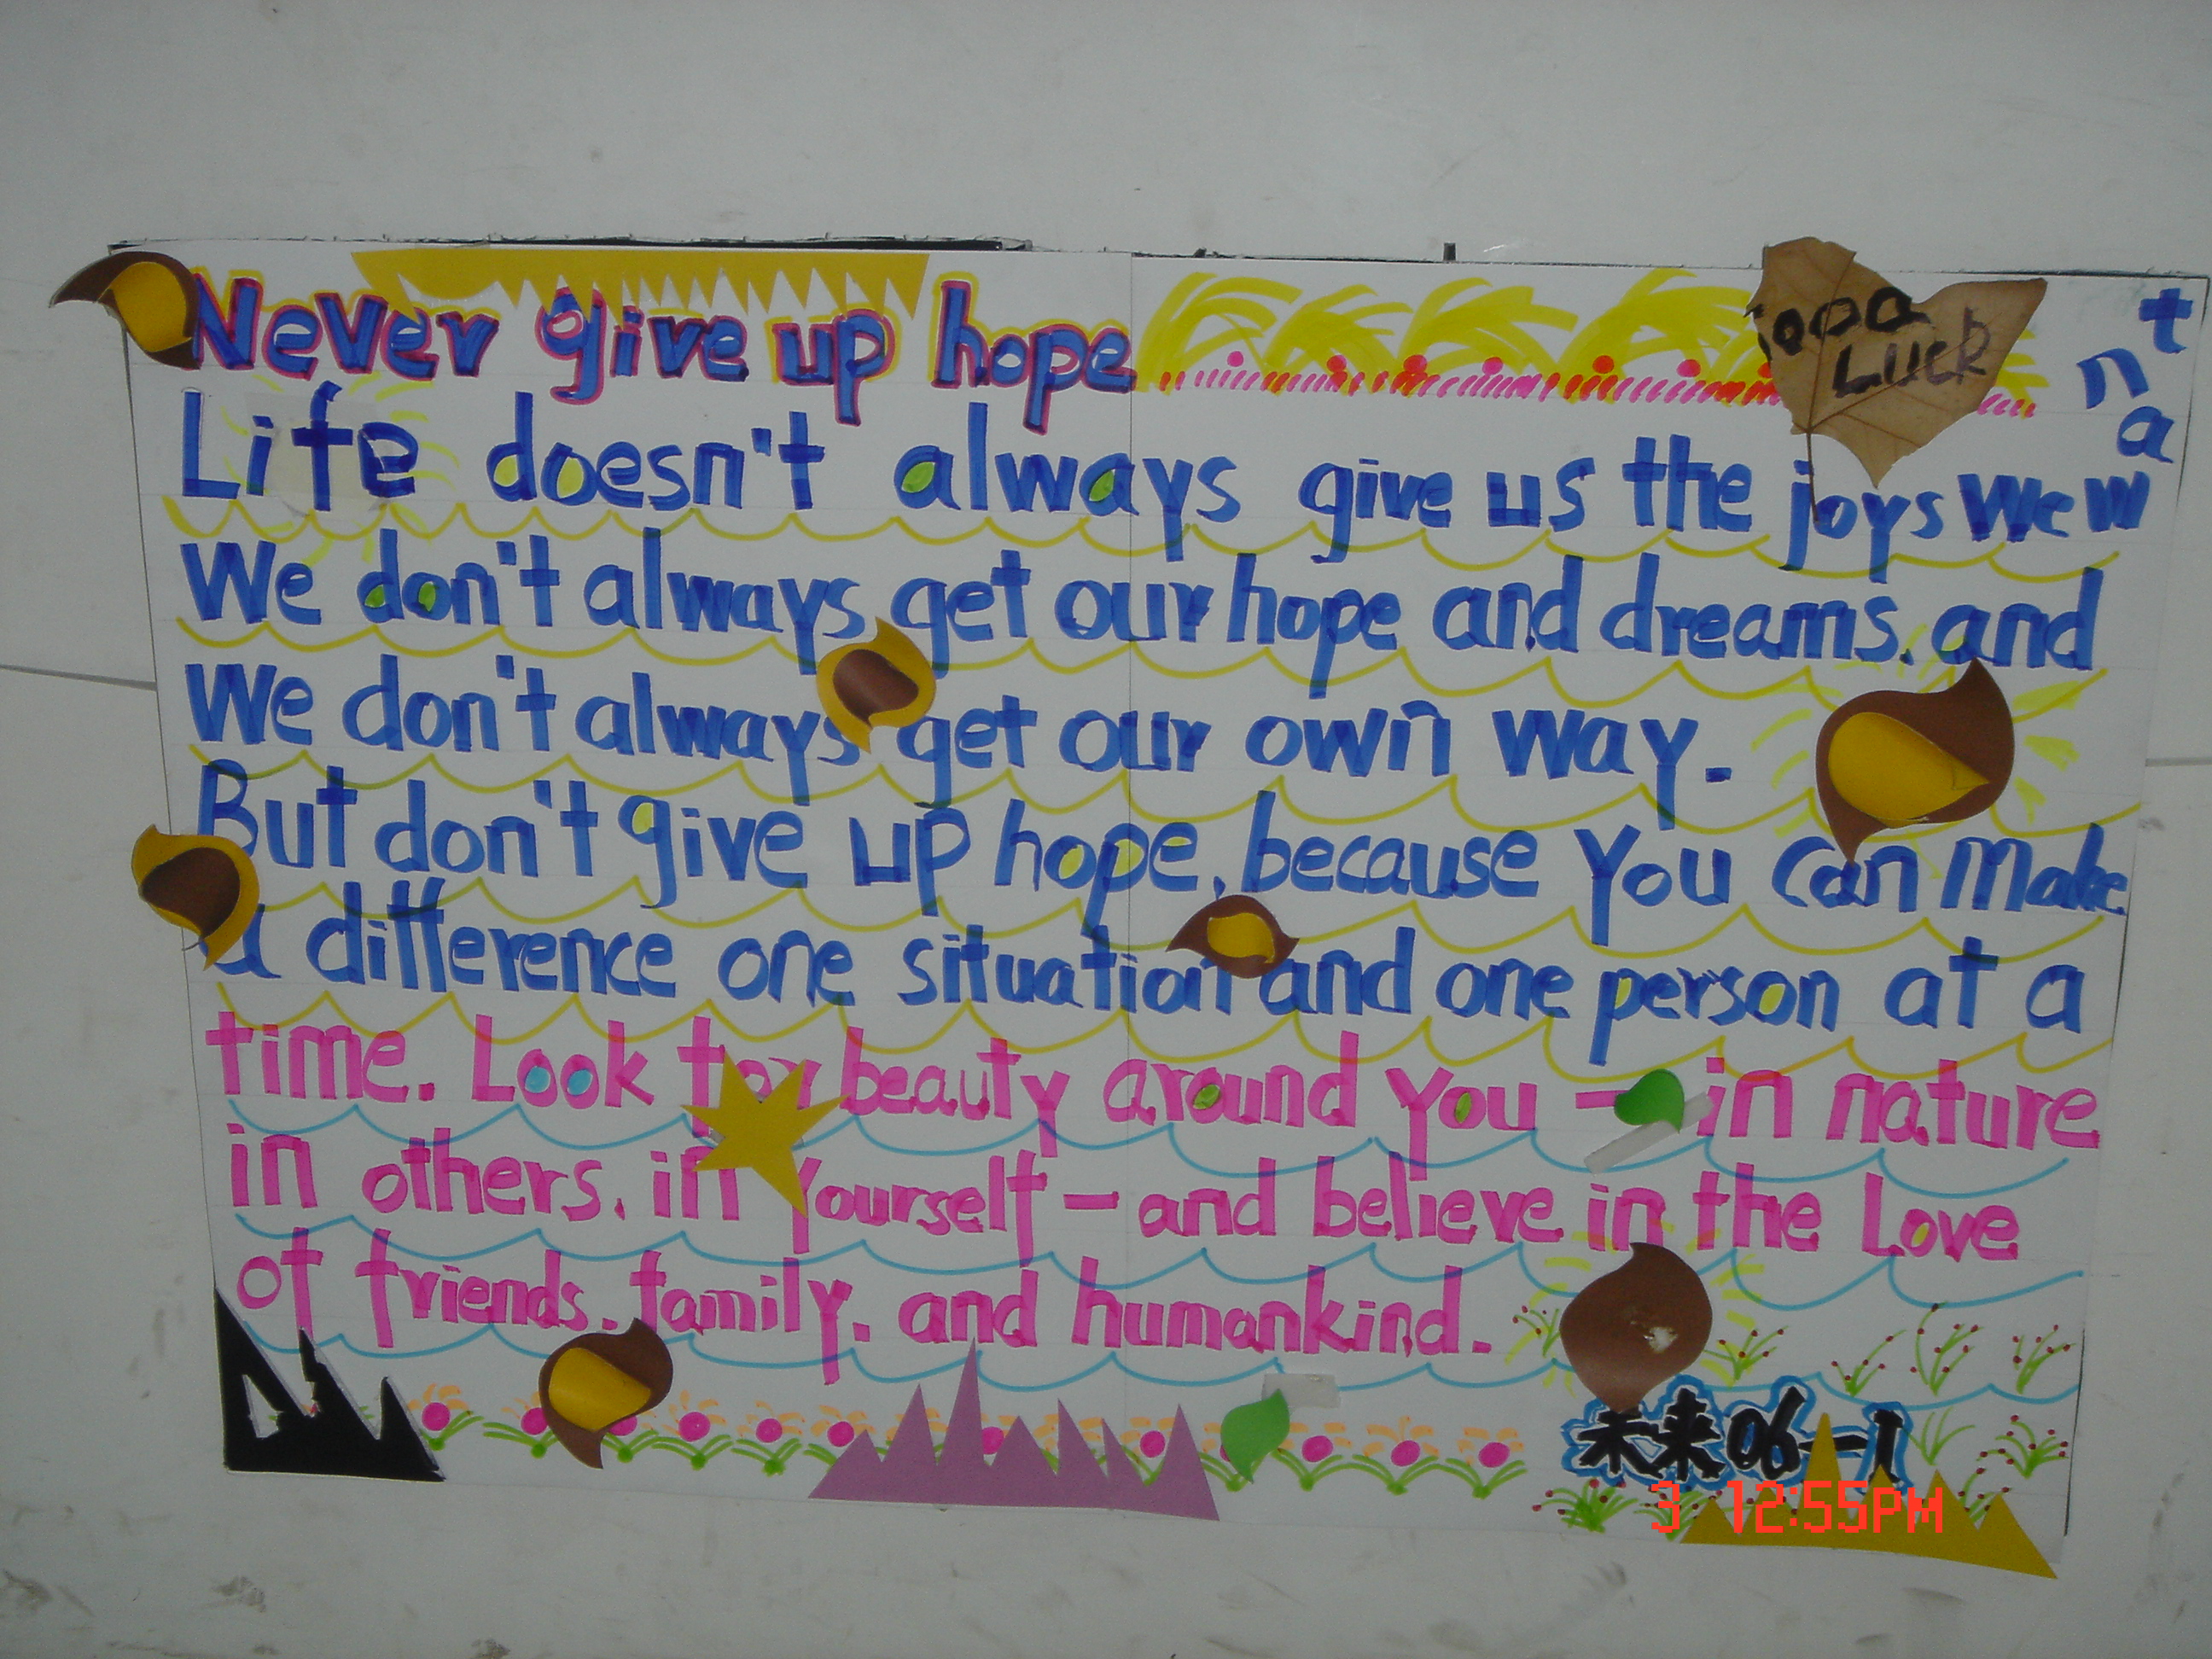 Never give up hope
Good
Luck
Life doesn't always give us the joys we want
We don't always get our hope and dreams. and
We don't always get our own way.
But don't give up hope, because you can make
a difference one situation and one person at a
time. Look for beauty around you - in nature
in others. in yourself - and believe in the Love
of friends. family. and humankind.
未来06-1
3 12:55PM